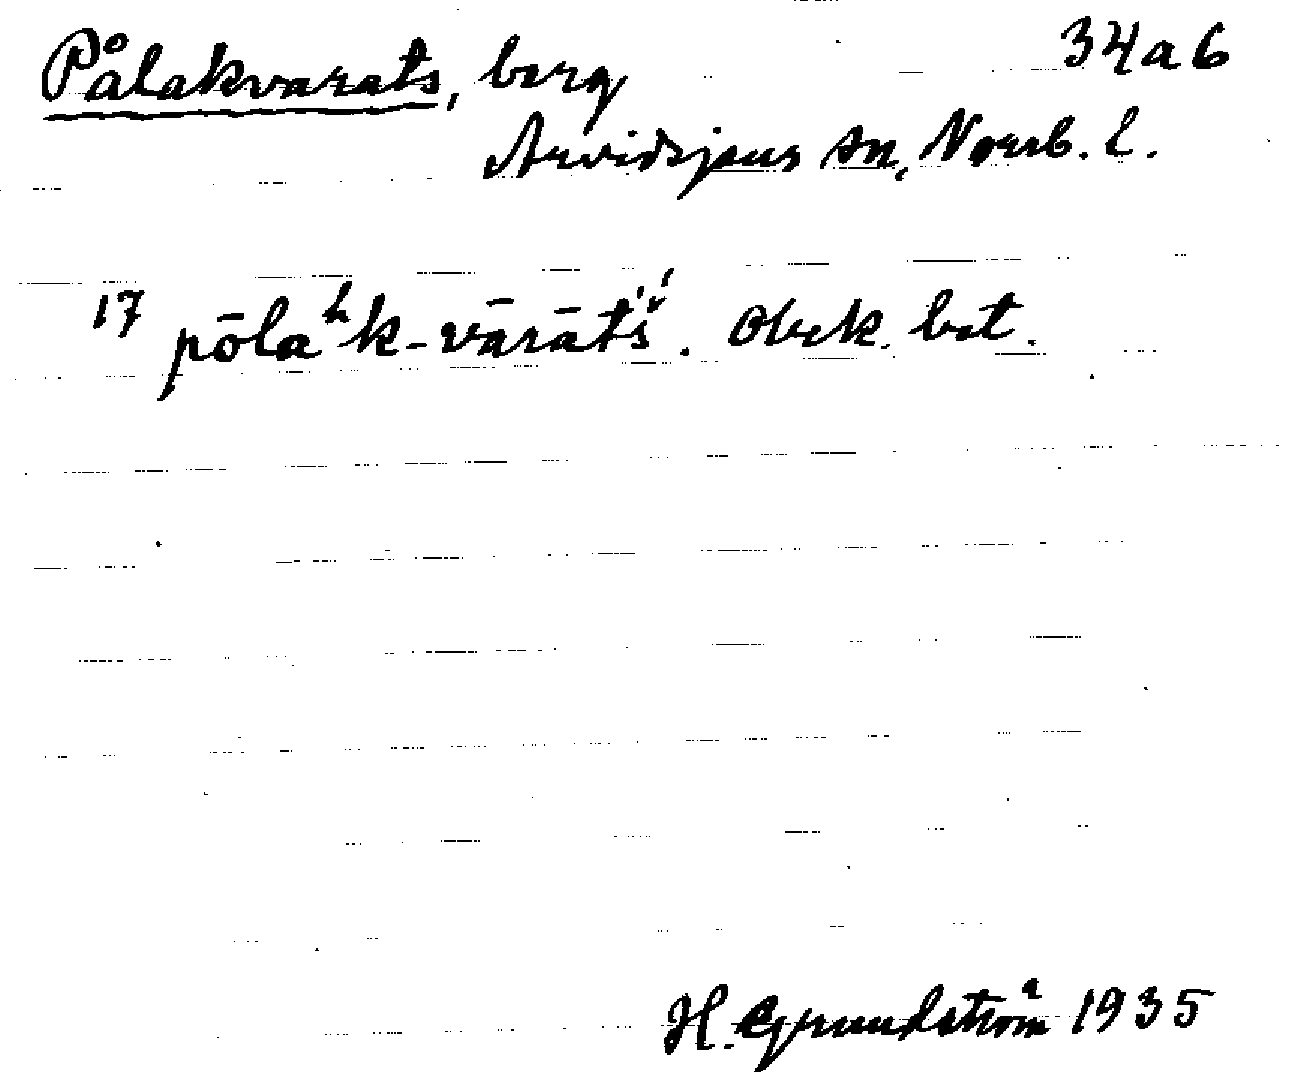 Pålakvarats, berg 34a6
Arvidsjaur sn, Norrb. l.
17 pōlaʰk-vārāt́š́. Obek. bet.
H. Grundström 1935